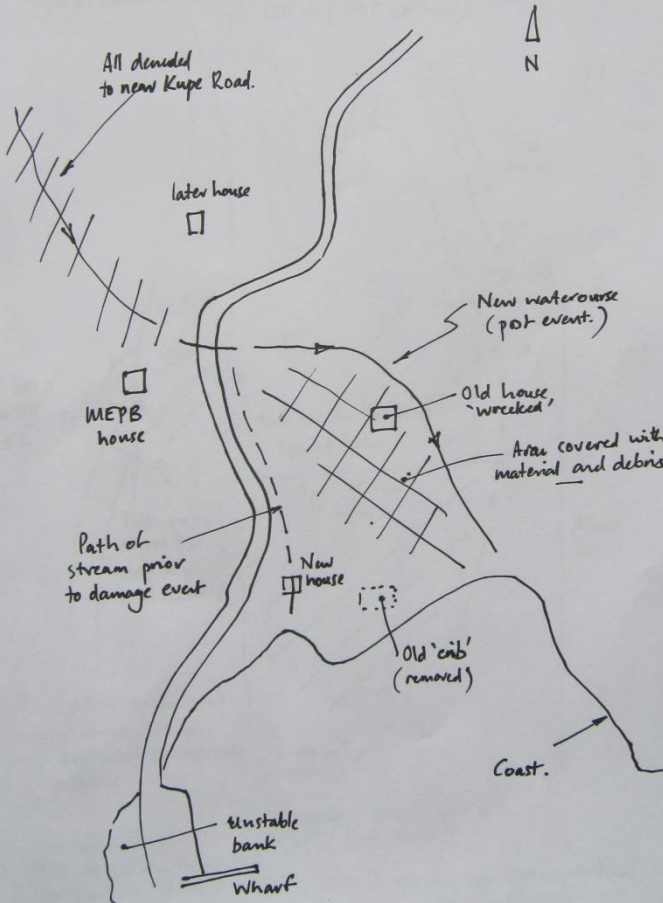 All denuded
to near Kupe Road.
N
later house
New watercourse
(post event.)
MEPB
house
Old house,
'wrecked'
Area covered with
material and debris
Path of
stream prior
to damage event
New
house
Old 'crib'
(removed)
Coast.
Unstable
bank
Wharf